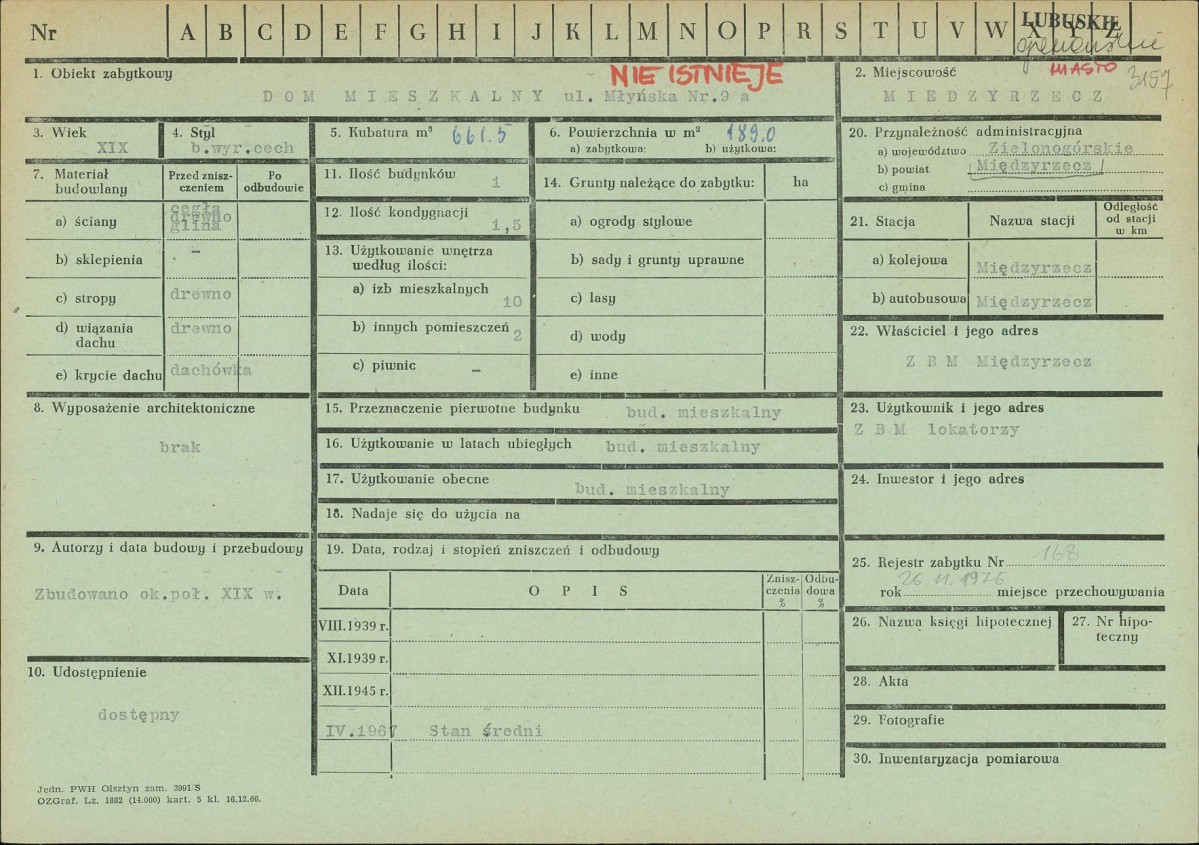 Nr A B C D E F G H I J K L M N O P R S T U V W X Y Z
LUBUSKIE
NIE ISTNIEJE
MIASTO
3157
1. Obiekt zabytkowy
DOM MIESZKALNY ul. Młyńska Nr.9 a
2. Miejscowość
MIEDZYRZECZ
3. Wiek
XIX
4. Styl
b.wyr.cech
5. Kubatura m³ 661.5
6. Powierzchnia w m² 189.0
a) zabytkowa: b) użytkowa:
7. Materiał budowlany
Przed znisz-
czeniem
Po
odbudowie
a) ściany
cegła
drewno
glina
b) sklepienia –
c) stropy drewno
d) wiązania
dachu
drewno
e) krycie dachu dachówka
8. Wyposażenie architektoniczne
brak
9. Autorzy i data budowy i przebudowy
Zbudowano ok.poł. XIX w.
10. Udostępnienie
dostępny
11. Ilość budynków 1
12. Ilość kondygnacji
1,5
13. Użytkowanie wnętrza
według ilości:
a) izb mieszkalnych
10
b) innych pomieszczeń
2
c) piwnic –
14. Grunty należące do zabytku: ha
a) ogrody stylowe
b) sady i grunty uprawne
c) lasy
d) wody
e) inne
15. Przeznaczenie pierwotne budynku bud. mieszkalny
16. Użytkowanie w latach ubiegłych bud. mieszkalny
17. Użytkowanie obecne bud. mieszkalny
18. Nadaje się do użycia na
19. Data, rodzaj i stopień zniszczeń i odbudowy
Data OPIS
Znisz-
czenia
%
Odbu-
dowa
%
VIII.1939 r.
XI.1939 r.
XII.1945 r.
IV.1967 Stan średni
20. Przynależność administracyjna
a) województwo Zielonogórskie
b) powiat Międzyrzecz
c) gmina
21. Stacja Nazwa stacji
Odległość
od stacji
w km
a) kolejowa Międzyrzecz
b) autobusowa Międzyrzecz
22. Właściciel i jego adres
Z B M Międzyrzecz
23. Użytkownik i jego adres
Z B M lokatorzy
24. Inwestor i jego adres
25. Rejestr zabytku Nr 168
rok 26 11. 1976 miejsce przechowywania
26. Nazwa księgi hipotecznej
27. Nr hipo-
teczny
28. Akta
29. Fotografie
30. Inwentaryzacja pomiarowa
Jedn. PWH Olsztyn zam. 3991/S
OZGraf. Lz. 1882 (14.000) kart. 5 kl. 16.12.66.